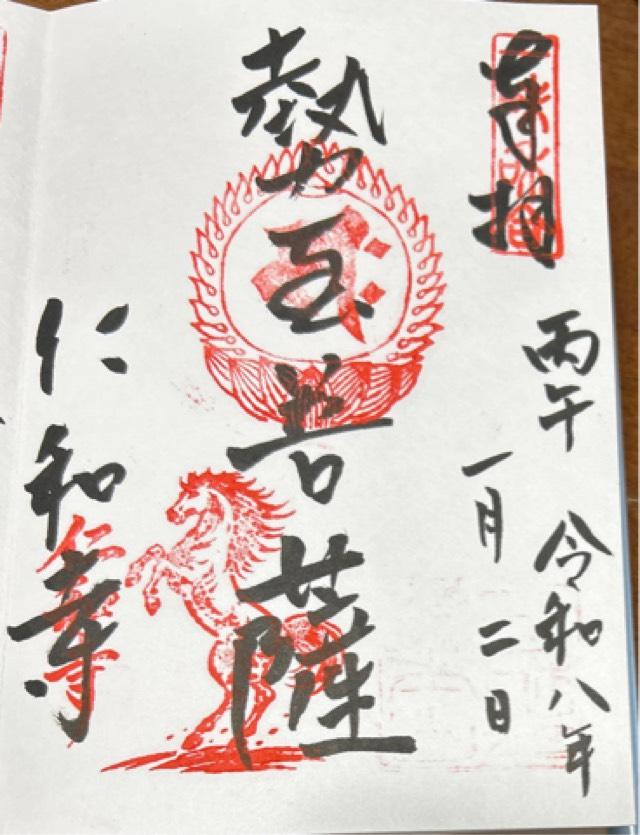 奉拝
丙午 令和八年
一月二日
勢至菩薩
仁和寺
仁和寺